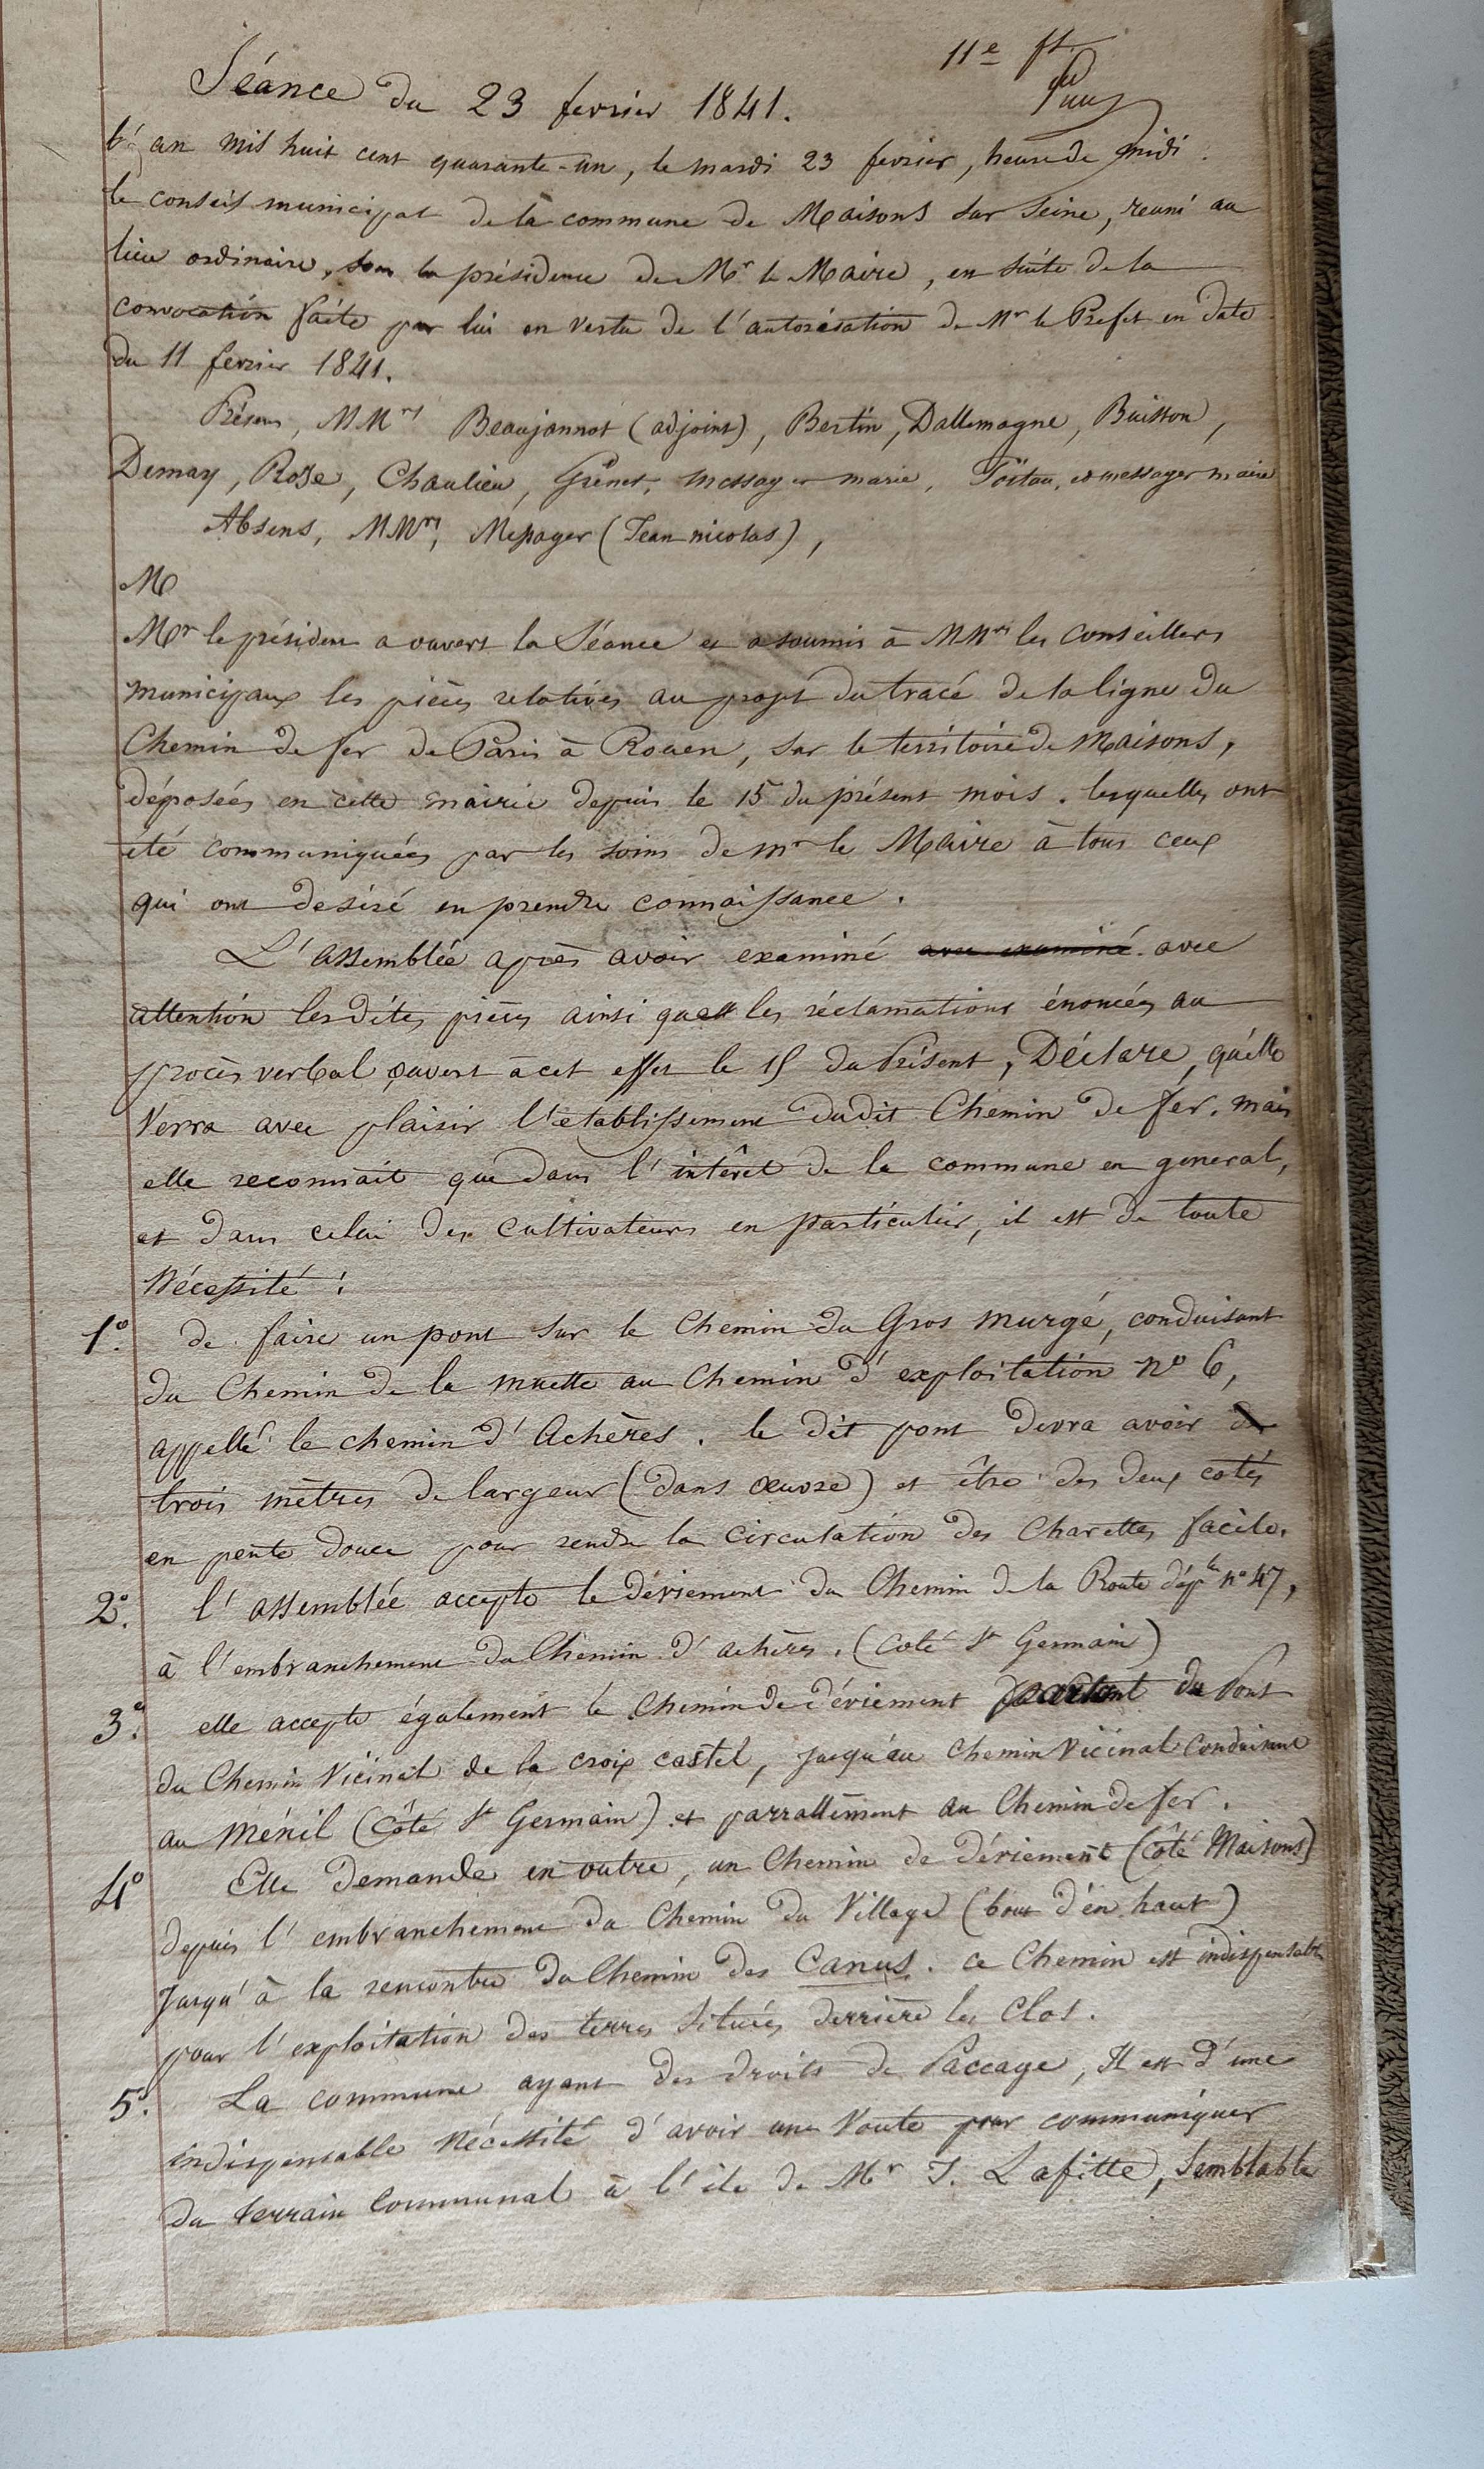 11e ft
Séance du 23 fevrier 1841.
L'an mil huit cent quarante-un, le mardi 23 fevrier, heure de midi.
le conseil municipal de la commune de Maisons sur Seine, reuni au
lieu ordinaire, sous la présidence de Mr le Maire, en suite de la
convocation faite par lui en vertu de l'autorisation de Mr le Prefet en date
du 11 fevrier 1841.
Présens, MMrs Beaujannot (adjoint), Bertin, Dallemagne, Buisson,
Demay, Roze, Chaulieu, Grenet, messager marie, et messager maire
Absens, MMrs, Messager (Jean nicolas),
M
Mr le président a ouvert la Séance et a soumis à MMrs les Conseillers
municipaux les pièces relatives au projet du tracé de la ligne du
Chemin de fer de Paris à Rouen, sur le territoire de Maisons,
déposées en cette mairie depuis le 15 du présent mois. lesquelles ont
été communiquées par les soins de mr le Maire à tous ceux
qui ont desiré en prendre connaissance.
L'assemblée après avoir examiné avec examiné avec
attention les dites pièces ainsi que les réclamations énoncées au
procès verbal ouvert à cet effet le 15 du Présent, Déclare, qu'elle
Verra avec plaisir l'etablissement dudit Chemin de fer. mais
elle reconnait que dans l'intéret de la commune en general,
et dans celui des Cultivateurs en particulier, il est de toute
Nécessité :
1o. de faire un pont sur le Chemin du Gros murgé, conduisant
du Chemin de la muette au Chemin d'exploitation no 6,
appellé le chemin d'Achères. le dit pont devra avoir de
trois mètres de largeur (dans œuvre) et être des deux cotés
en pente douce pour rendre la circulation des Charettes facile.
2o. l'assemblée accepte le déviement du Chemin de la Route déple no 47,
à l'embranchement du Chemin d'achères. (coté St Germain)
3o. elle accepte également le Chemin de déviement partant du Pont
du Chemin Vicinal de la croix castel, jusqu'au chemin Vicinal Conduisant
au Ménil (côté St Germain) et parrallèment au Chemin de fer.
4o Elle demande en outre, un Chemin de déviement (côté Maisons)
depuis l'embranchement du Chemin du Village (bout d'en haut)
Jusqu'à la rencontre du Chemin des Canus. ce Chemin est indispensable
pour l'exploitation des terres situées derrière les Clos.
5o. La commune ayant des droits de Paccage, Il est d'une
indispensable nécessité d'avoir une Voute pour communiquer
du terrain Communal à l'ile de Mr J. Lafitte, semblable